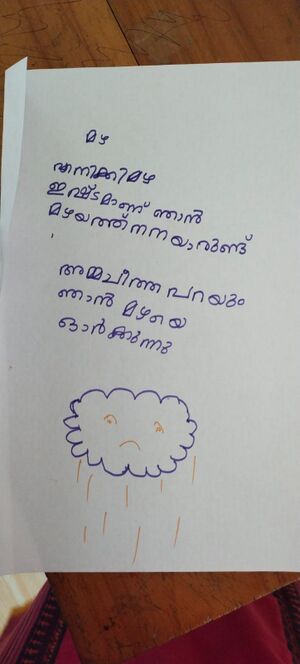 മഴ
എനിക്കി മഴ
ഇഷ്ടമാണ് ഞാൻ
മഴയത്ത് നനയാറുണ്ട്
അമ്മചീത്ത പറയും
ഞാൻ മഴയെ
ഓർക്കുന്നു